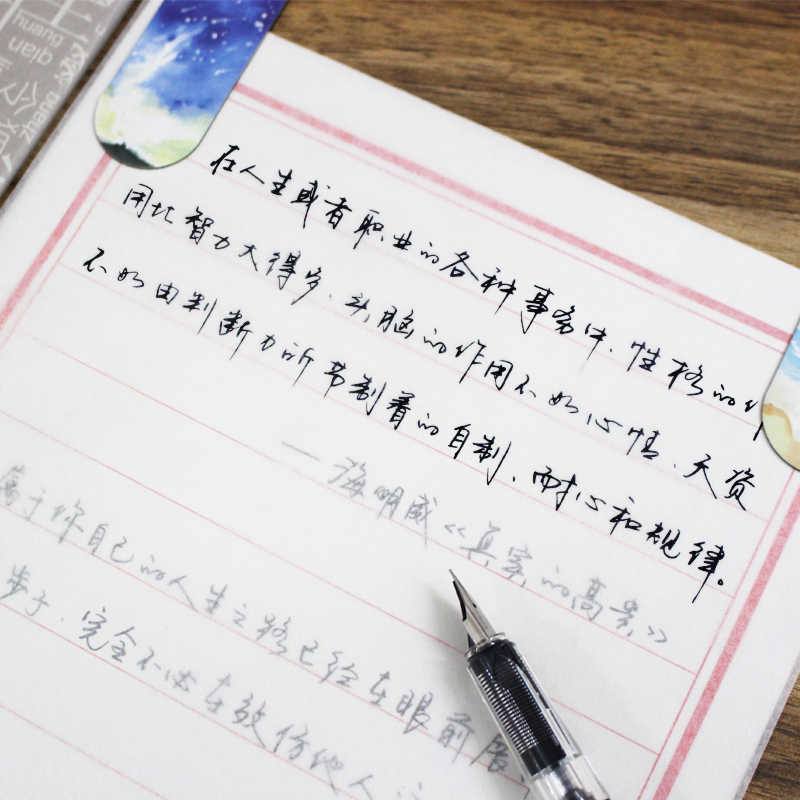 huang
qian
zhang
在人生或者职业的各种事务中、性格的作
用比智力大得多、头脑的作用不如心情、天资
不如由判断力所节制着的自制、耐心和规律。
—海明威《真实的高贵》
属于你自己的人生之路已经在眼前展
步子、完全不必在效仿他人